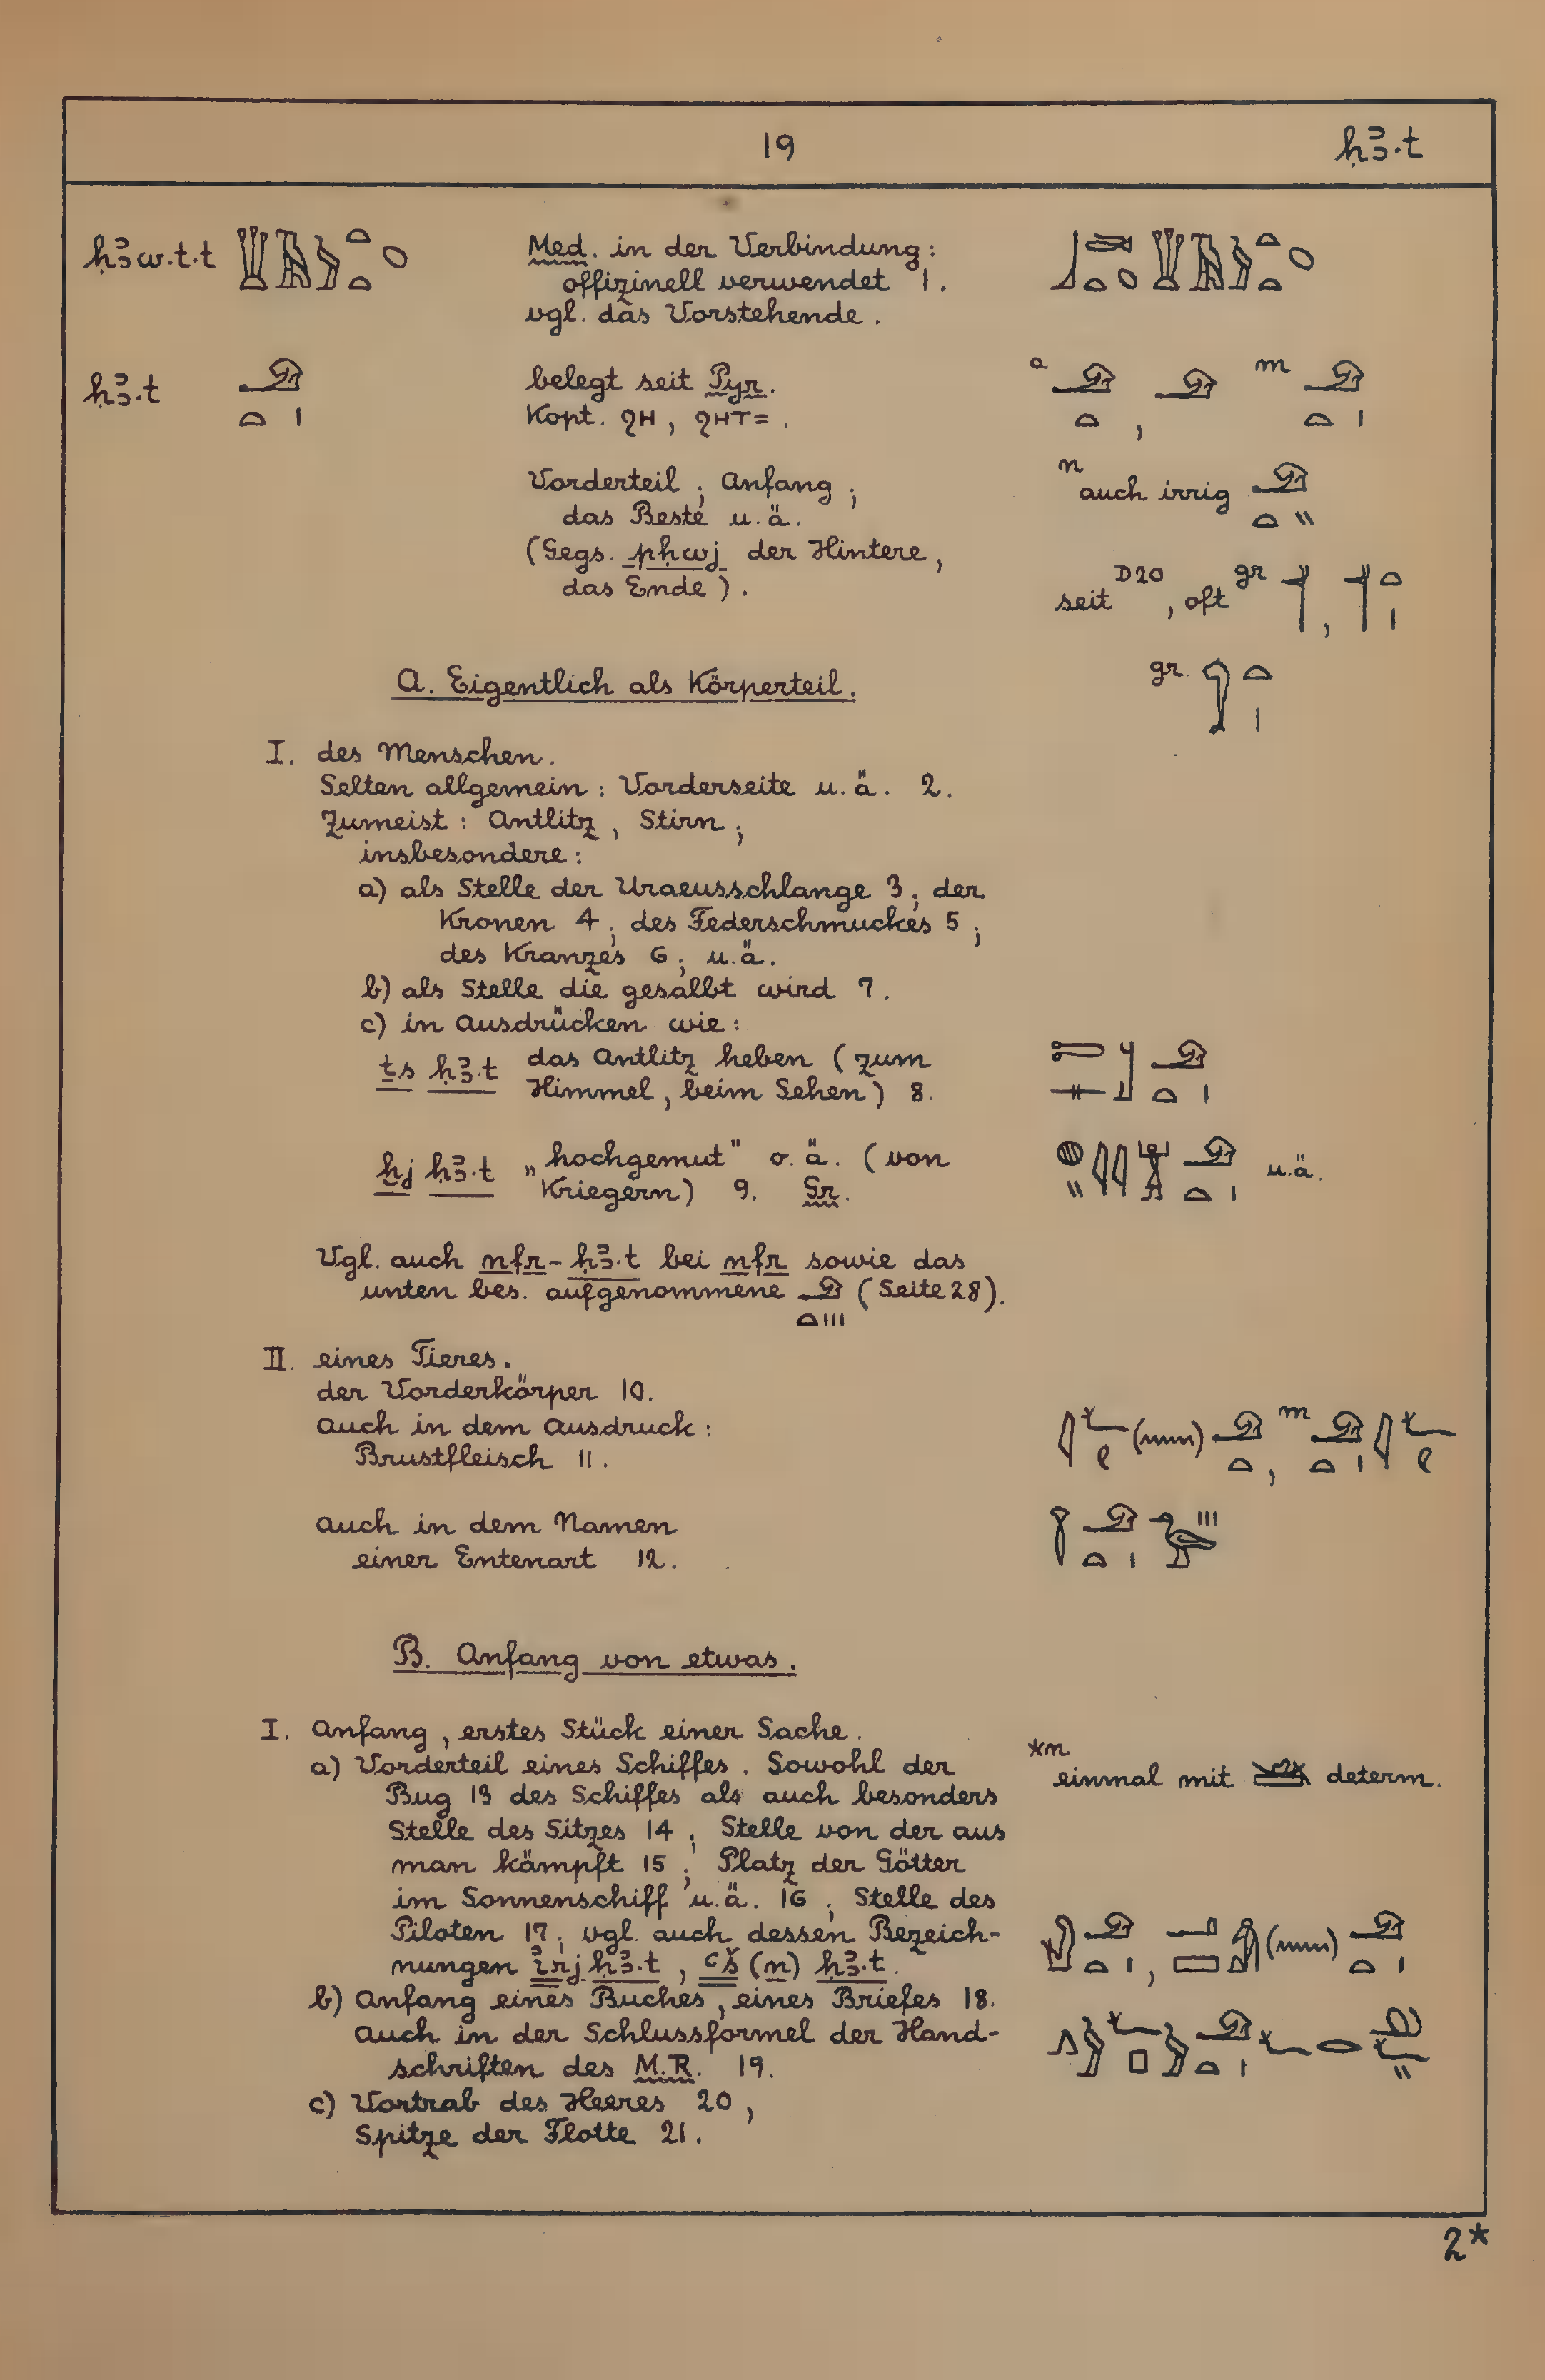 19 ḥꜣ.t
ḥꜣw.t.t Med. in der Verbindung:
offizinell verwendet 1.
vgl. das Vorstehende.
ḥꜣ.t belegt seit Pyr. a , m
Kopt. ϩH, ϩHT=.
Vorderteil; Anfang; n auch irrig
das Beste u.ä.
(Gegs. pḥwj der Hintere,
das Ende). seit D20, oft gr ,
A. Eigentlich als Körperteil. gr.
I. des Menschen.
Selten allgemein: Vorderseite u.ä. 2.
Zumeist: Antlitz, Stirn;
insbesondere:
a) als Stelle der Uraeusschlange 3; der
Kronen 4; des Federschmuckes 5;
des Kranzes 6; u.ä.
b) als Stelle die gesalbt wird 7.
c) in Ausdrücken wie:
ṯs ḥꜣ.t das Antlitz heben (zum
Himmel, beim Sehen) 8.
ḫj ḥꜣ.t „hochgemut" o.ä. (von u.ä.
Kriegern) 9. Gr.
Vgl. auch nfr-ḥꜣ.t bei nfr sowie das
unten bes. aufgenommene (Seite 28).
II. eines Tieres.
der Vorderkörper 10.
auch in dem Ausdruck:
Brustfleisch 11. , m
auch in dem Namen
einer Entenart 12.
B. Anfang von etwas.
I. Anfang, erstes Stück einer Sache.
a) Vorderteil eines Schiffes. Sowohl der *n einmal mit determ.
Bug 13 des Schiffes als auch besonders
Stelle des Sitzes 14; Stelle von der aus
man kämpft 15; Platz der Götter
im Sonnenschiff u.ä. 16; Stelle des
Piloten 17; vgl. auch dessen Bezeich-
nungen ı͗rj ḥꜣ.t, ꜥš (n) ḥꜣ.t.
b) Anfang eines Buches, eines Briefes 18.
auch in der Schlussformel der Hand-
schriften des M.R. 19.
c) Vortrab des Heeres 20,
Spitze der Flotte 21.
2*